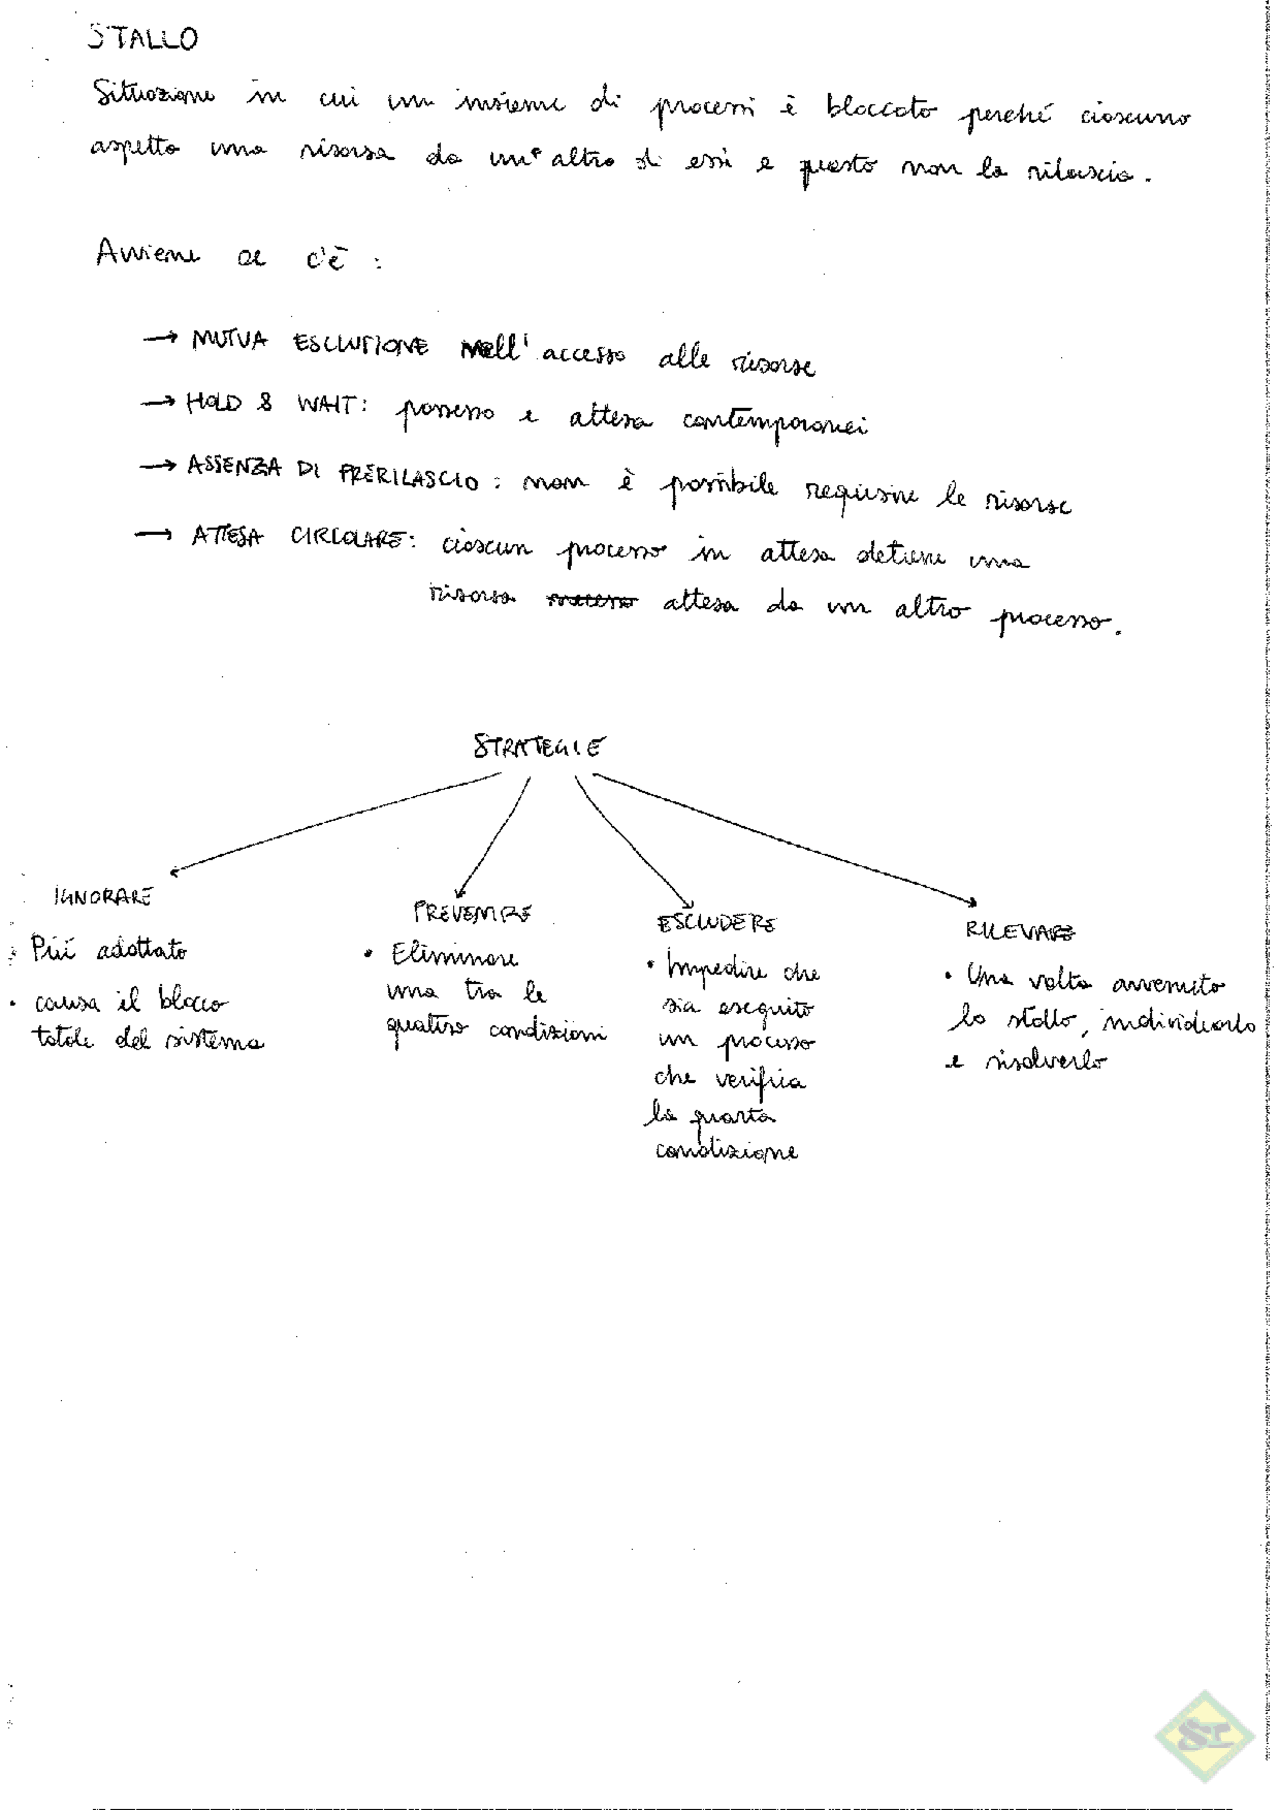 STALLO
Situazione in cui un insieme di processi è bloccato perché ciascuno
aspetta una risorsa da un altro di essi e questo non la rilascia.
Avviene se c'è :
→ MUTUA ESCLUSIONE nell' accesso alle risorse
→ HOLD & WAIT: possesso e attesa contemporanei
→ ASSENZA DI PRERILASCIO : non è possibile requisire le risorse
→ ATTESA CIRCOLARE: ciascun processo in attesa detiene una
risorsa attesa da un altro processo.
STRATEGIE
IGNORARE
• Più adottato
• causa il blocco
totale del sistema
PREVENIRE
• Eliminare
una tra le
quattro condizioni
ESCLUDERE
• Impedire che
sia eseguito
un processo
che verifica
la quarta
condizione
RILEVARE
• Una volta avvenuto
lo stallo, individuarlo
e risolverlo